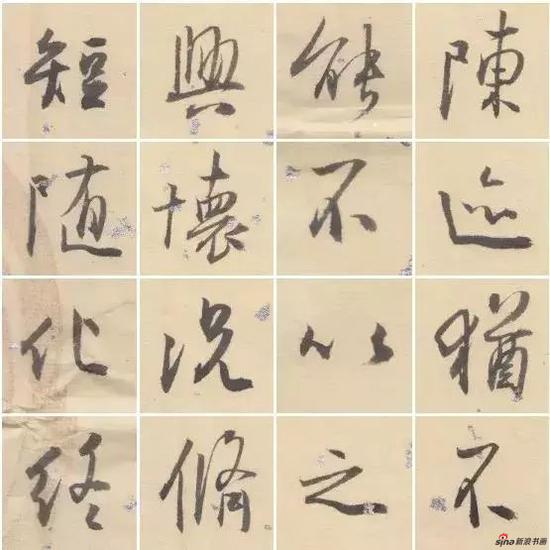 陳迹猶不
能不以之
興懷況脩
短随化終
sina新浪书画